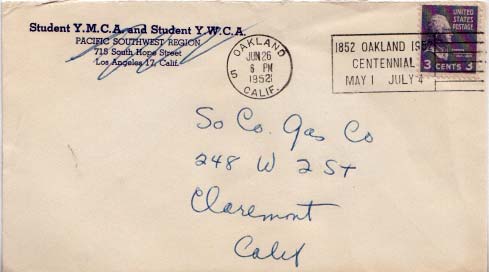 Student Y.M.C.A. and Student Y.W.C.A.
PACIFIC SOUTHWEST REGION
715 South Hope Street
Los Angeles 17, Calif.
OAKLAND
JUN 26
6 PM
1952
5
CALIF.
1852 OAKLAND 195
CENTENNIAL
MAY 1 JULY 4
UNITED
STATES
POSTAGE
3 CENTS 3
So Co. Gas Co
248 W 2 St
Claremont
Calif